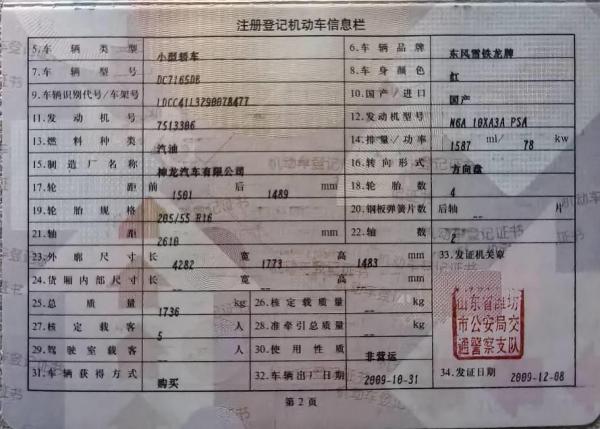 注册登记机动车信息栏
5.车辆类型 小型轿车 6.车辆品牌 东风雪铁龙牌
7.车辆型号 DC7165DB 8.车身颜色 红
9.车辆识别代号/车架号 LDCC41L3290078477 10.国产/进口 国产
11.发动机号 7513306 12.发动机型号 N6A 10XA3A PSA
13.燃料种类 汽油 14.排量/功率 1587 ml/ 78 kw
15.制造厂名称 神龙汽车有限公司 16.转向形式 方向盘
17.轮距 前 1501 后 1489 mm 18.轮胎数 4
19.轮胎规格 205/55 R16 20.钢板弹簧片数 后轴 -- 片
21.轴距 2610 mm 22.轴数 2
23.外廓尺寸 长 4282 宽 1773 高 1483 mm 33.发证机关章
24.货厢内部尺寸 长 -- 宽 -- 高 -- mm
25.总质量 1736 kg 26.核定载质量 -- kg
27.核定载客 5 人 28.准牵引总质量 -- kg
29.驾驶室载客 -- 人 30.使用性质 非营运
31.车辆获得方式 购买 32.车辆出厂日期 2009-10-31 34.发证日期 2009-12-08
山东省潍坊
市公安局交
通警察支队
第2页